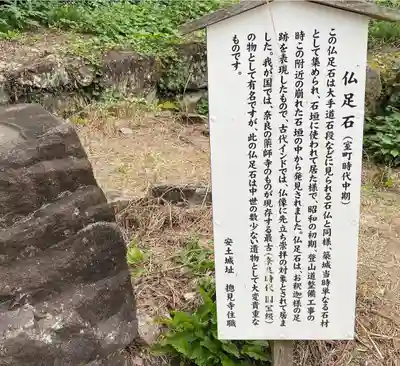 仏足石(室町時代中期)
この仏足石は大手道石段などに見られる石仏と同様、築城当時単なる石材
として集められ、石垣に使われて居た様で、昭和の初期、登山道整備工事の
時この附近の崩れた石垣の中から発見されました。仏足石は、お釈迦様の足
跡を表現したもので、古代インドでは、仏像に先立ち崇拝の対象とされて居ま
した。我が国では、奈良の薬師寺のものが現存する最古(奈良時代、国宝)
の物として有名ですが、此の仏足石は中世の数少ない遺物として大変貴重な
ものです。
安土城址 摠見寺住職